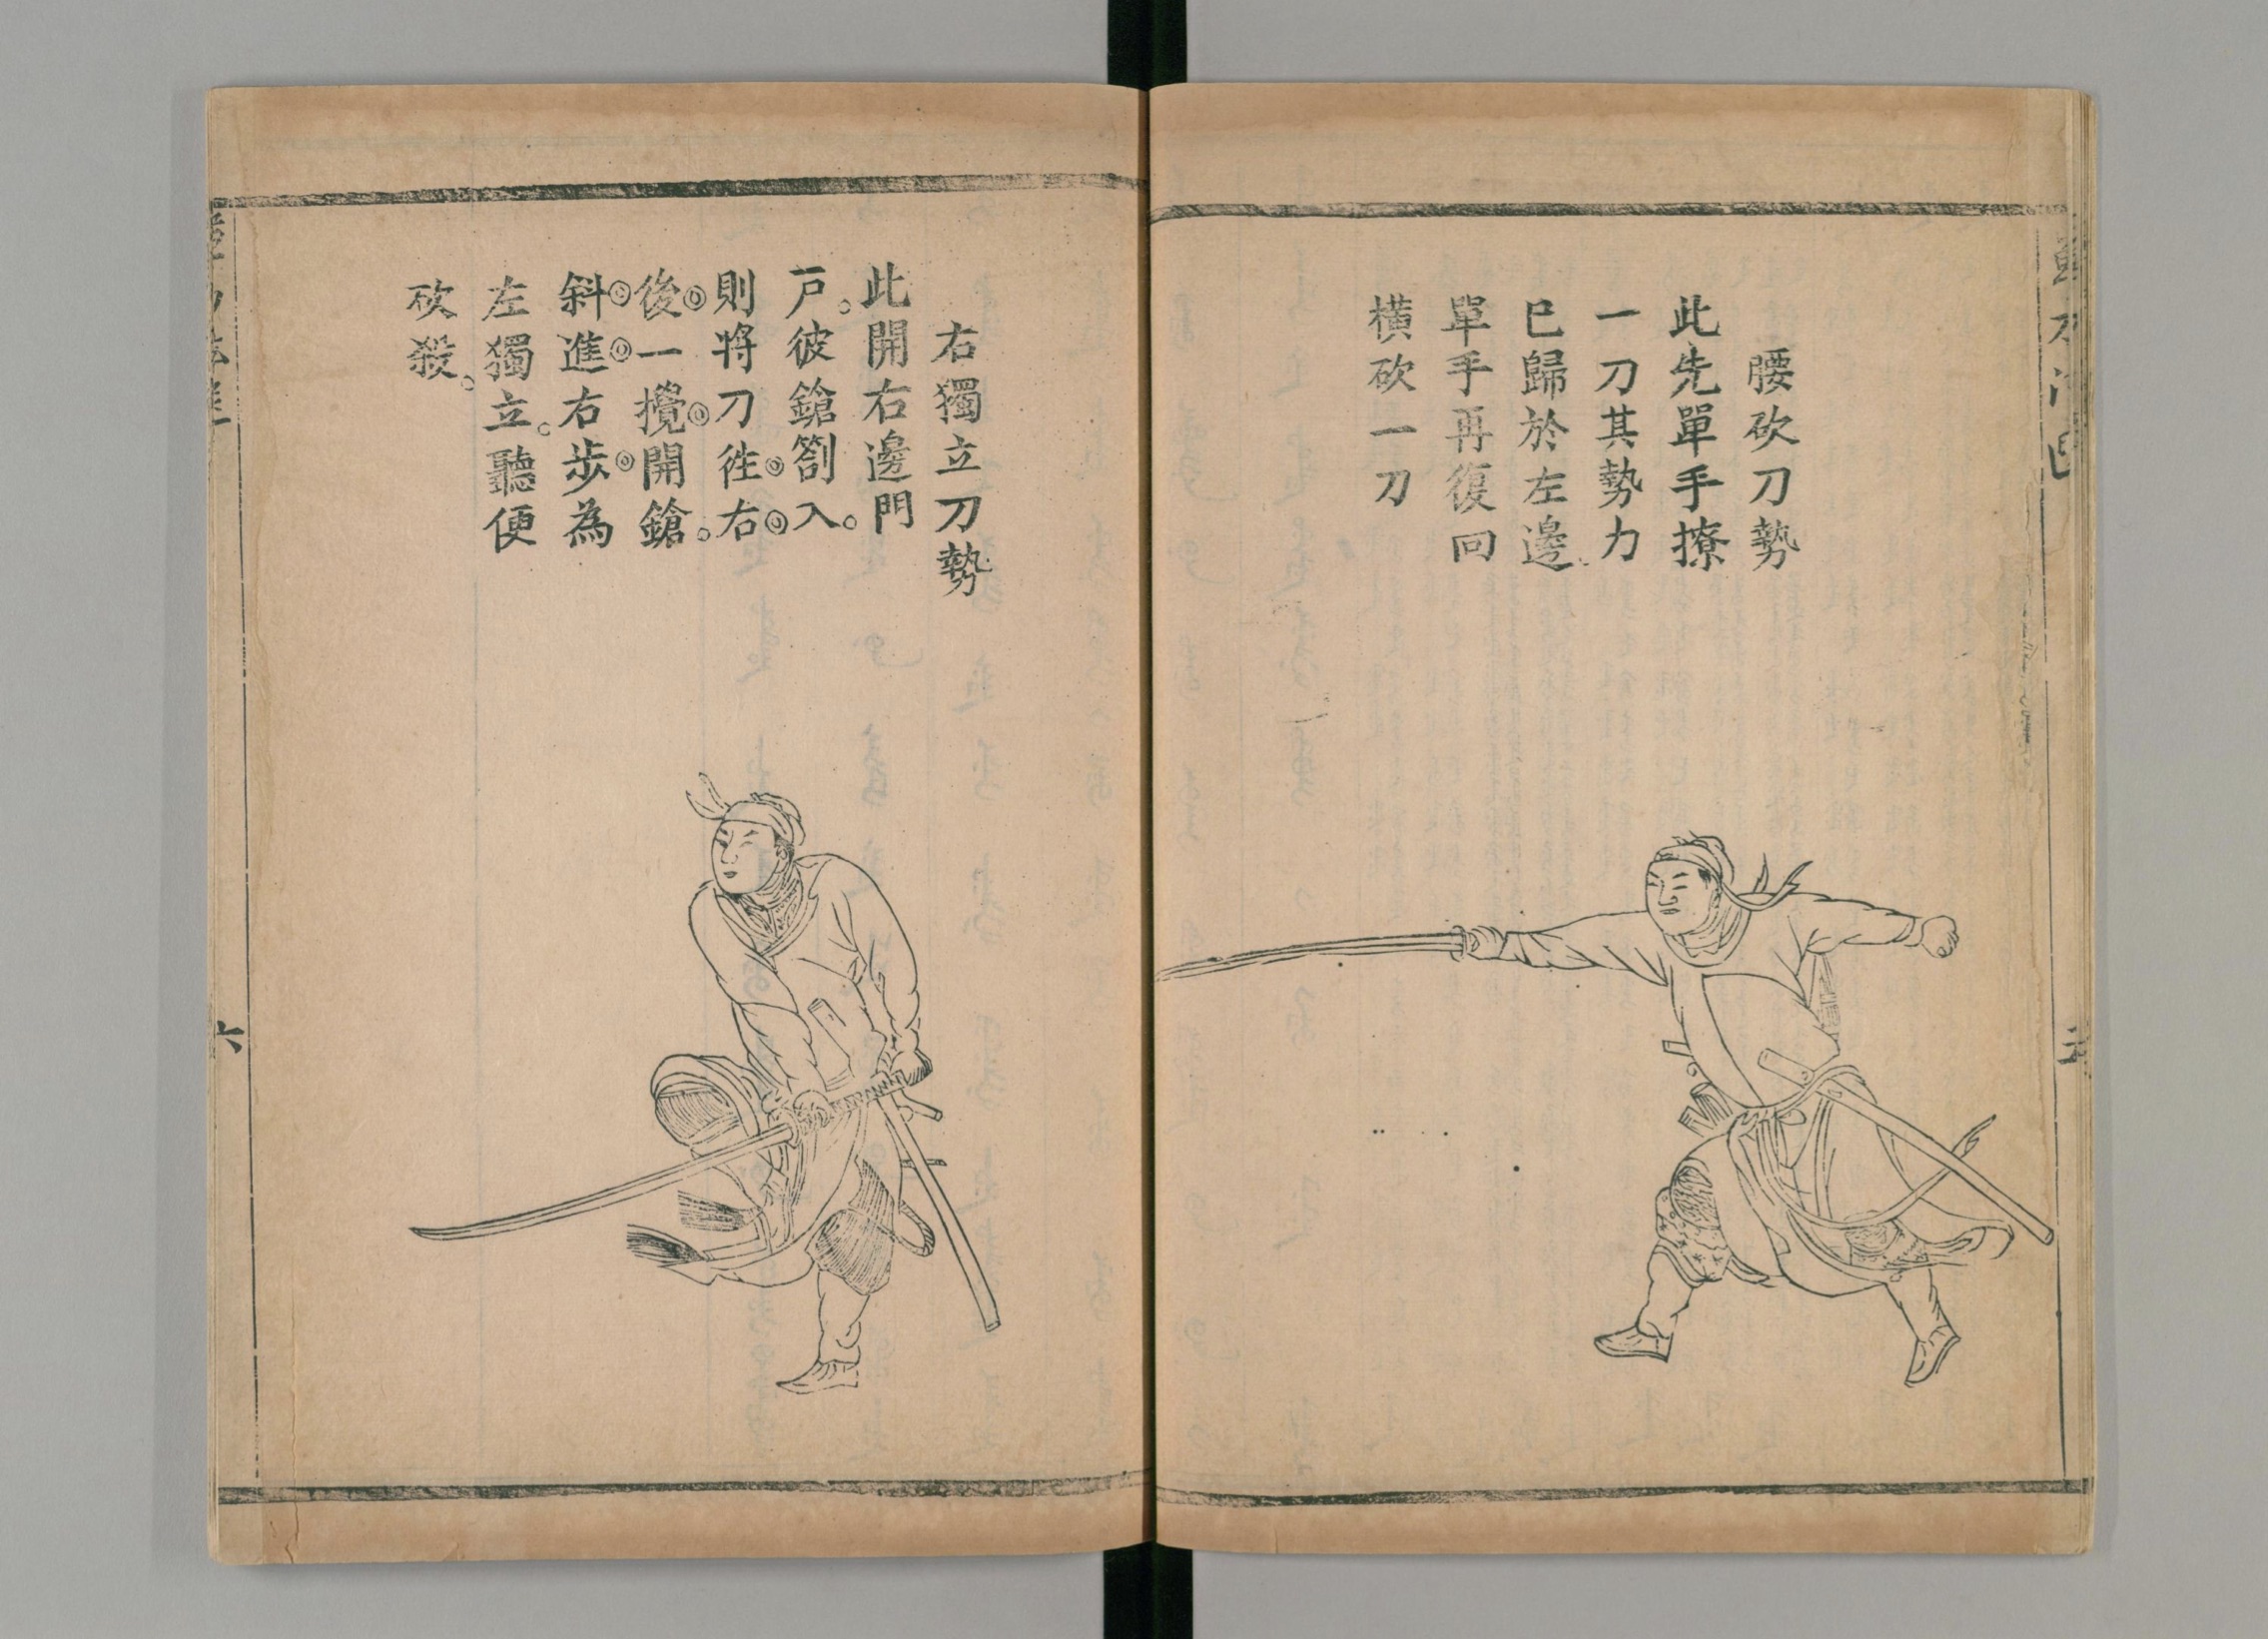 腰砍刀勢
此先單手撩
一刀其勢力
已歸於左邊
單手再復回
橫砍一刀
右獨立刀勢
此開右邊門
戶。彼鎗劄入。
則將刀徃右
後一攪開鎗。
斜進右歩為
左獨立。聽便
砍殺。
六